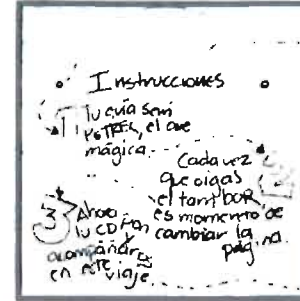 Instrucciones
1 Tu guía será
el ave
mágica.
Cada vez
que oigas
el tambor
es momento de
cambiar la
página
3 Ahora
tu CD
acompañar
en este viaje